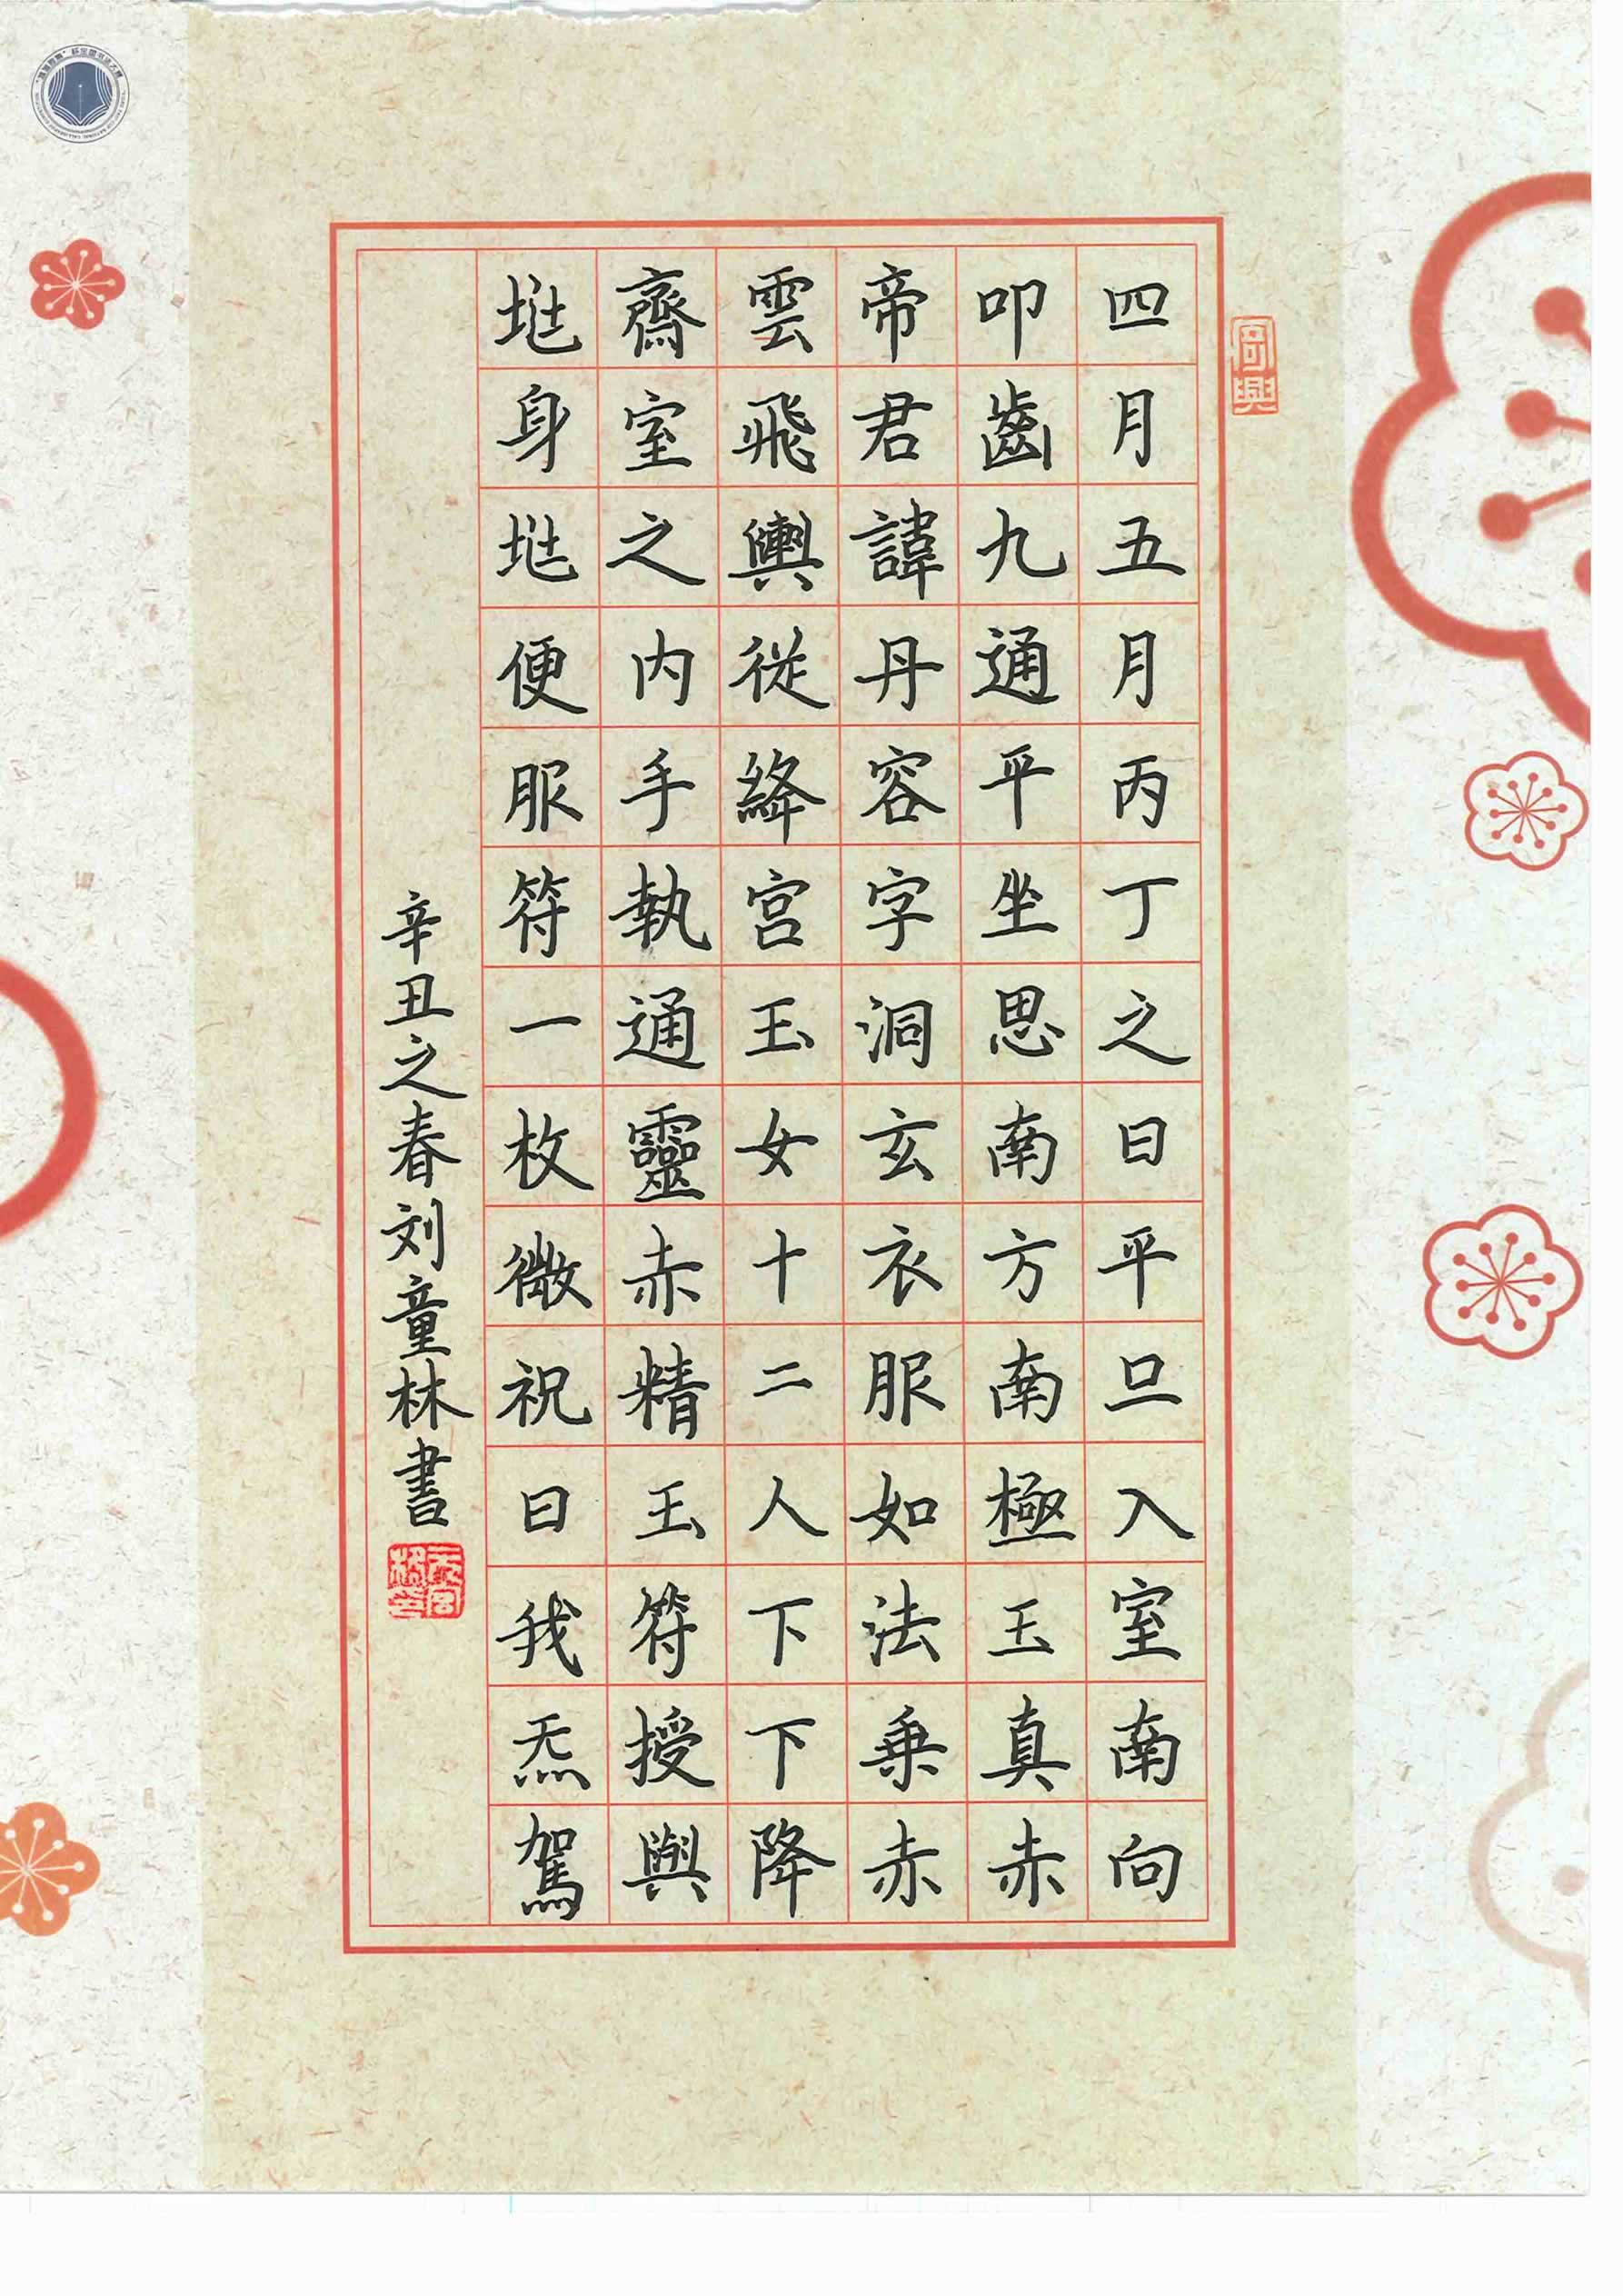 四月五月丙丁之日平旦入室南向
叩齒九通平坐思南方南極玉真赤
帝君諱丹容字洞玄衣服如法乗赤
雲飛輿從絳宫玉女十二人下下降
齋室之内手執通靈赤精玉符授與
兆身兆便服符一枚微祝曰我炁駕
辛丑之春刘童林書